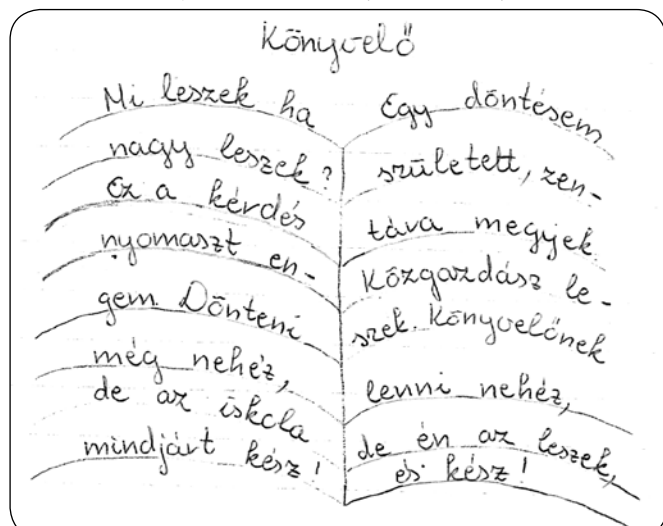 Könyvelő
Mi leszek ha
nagy leszek?
Ez a kérdés
nyomaszt en-
gem. Dönteni
még nehéz,
de az iskola
mindjárt kész!
Egy döntésem
született, zen-
táva megyek.
Közgazdász le-
szek. Könyvelőnek
lenni nehéz,
de én az leszek,
és kész!